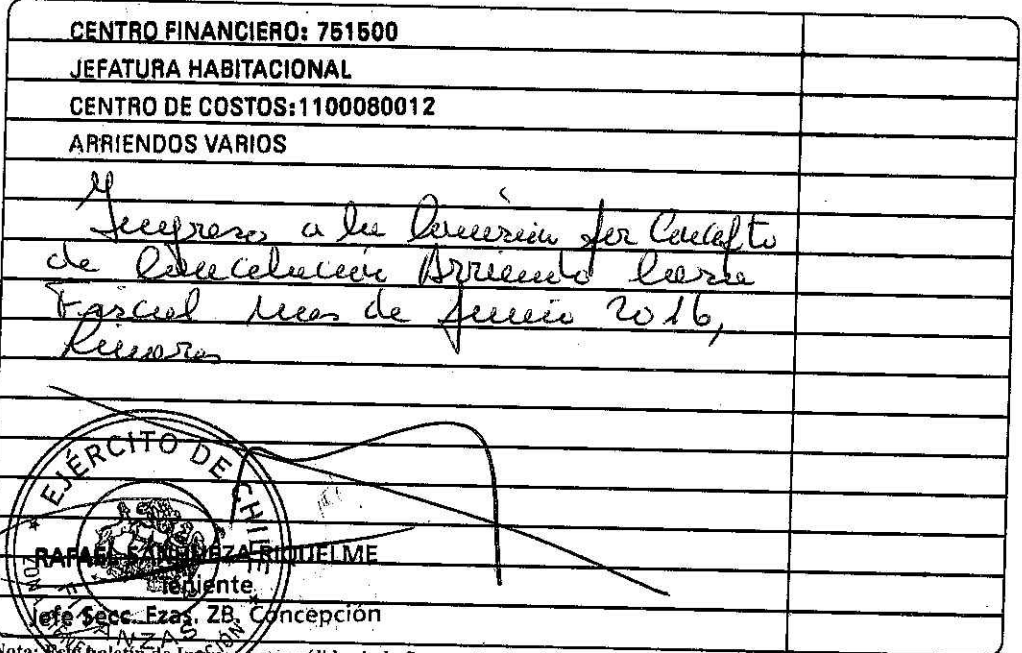 CENTRO FINANCIERO: 751500
JEFATURA HABITACIONAL
CENTRO DE COSTOS:1100080012
ARRIENDOS VARIOS
Ingreso a la por Concepto
de Cancelación Arriendo Casa
Fiscal mes de Junio 2016,
Linares
EJÉRCITO DE CHILE
RAFAEL SANHUEZA RIQUELME
Teniente
Jefe Secc. Fzas. ZB. Concepción
FINANZAS
Nota: